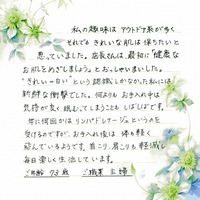 私の趣味は アウトドア系が多く
それでも きれいな肌は保ちたいと
思っていました。店長さんは、最初に"健康な
お肌をめざしましょう。"とおっしゃいました。
"きれい=白い"という認識しかなかった私には
新鮮な衝撃でした。何よりも お手入れ中は
気持が良く眠むってしまうことも しばしばです。
年に何回かは リンパドレナージュというのを
受けるのですが、お手入れ後は 体も軽く
弾んでいるようです。首こり、肩こりも軽減し
毎日楽しく生活しています。
ご年齢 73歳 ご職業 主婦